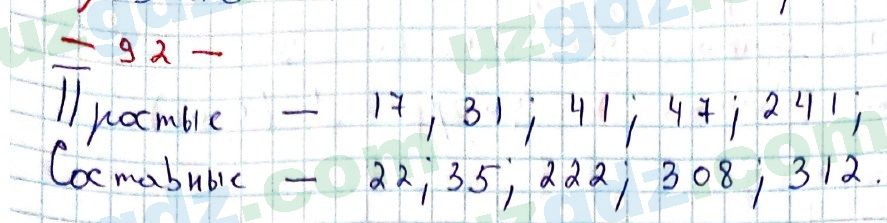 – 92 –
Простые – 17; 31; 41; 47; 241;
Составные – 22; 35; 222; 308; 312.